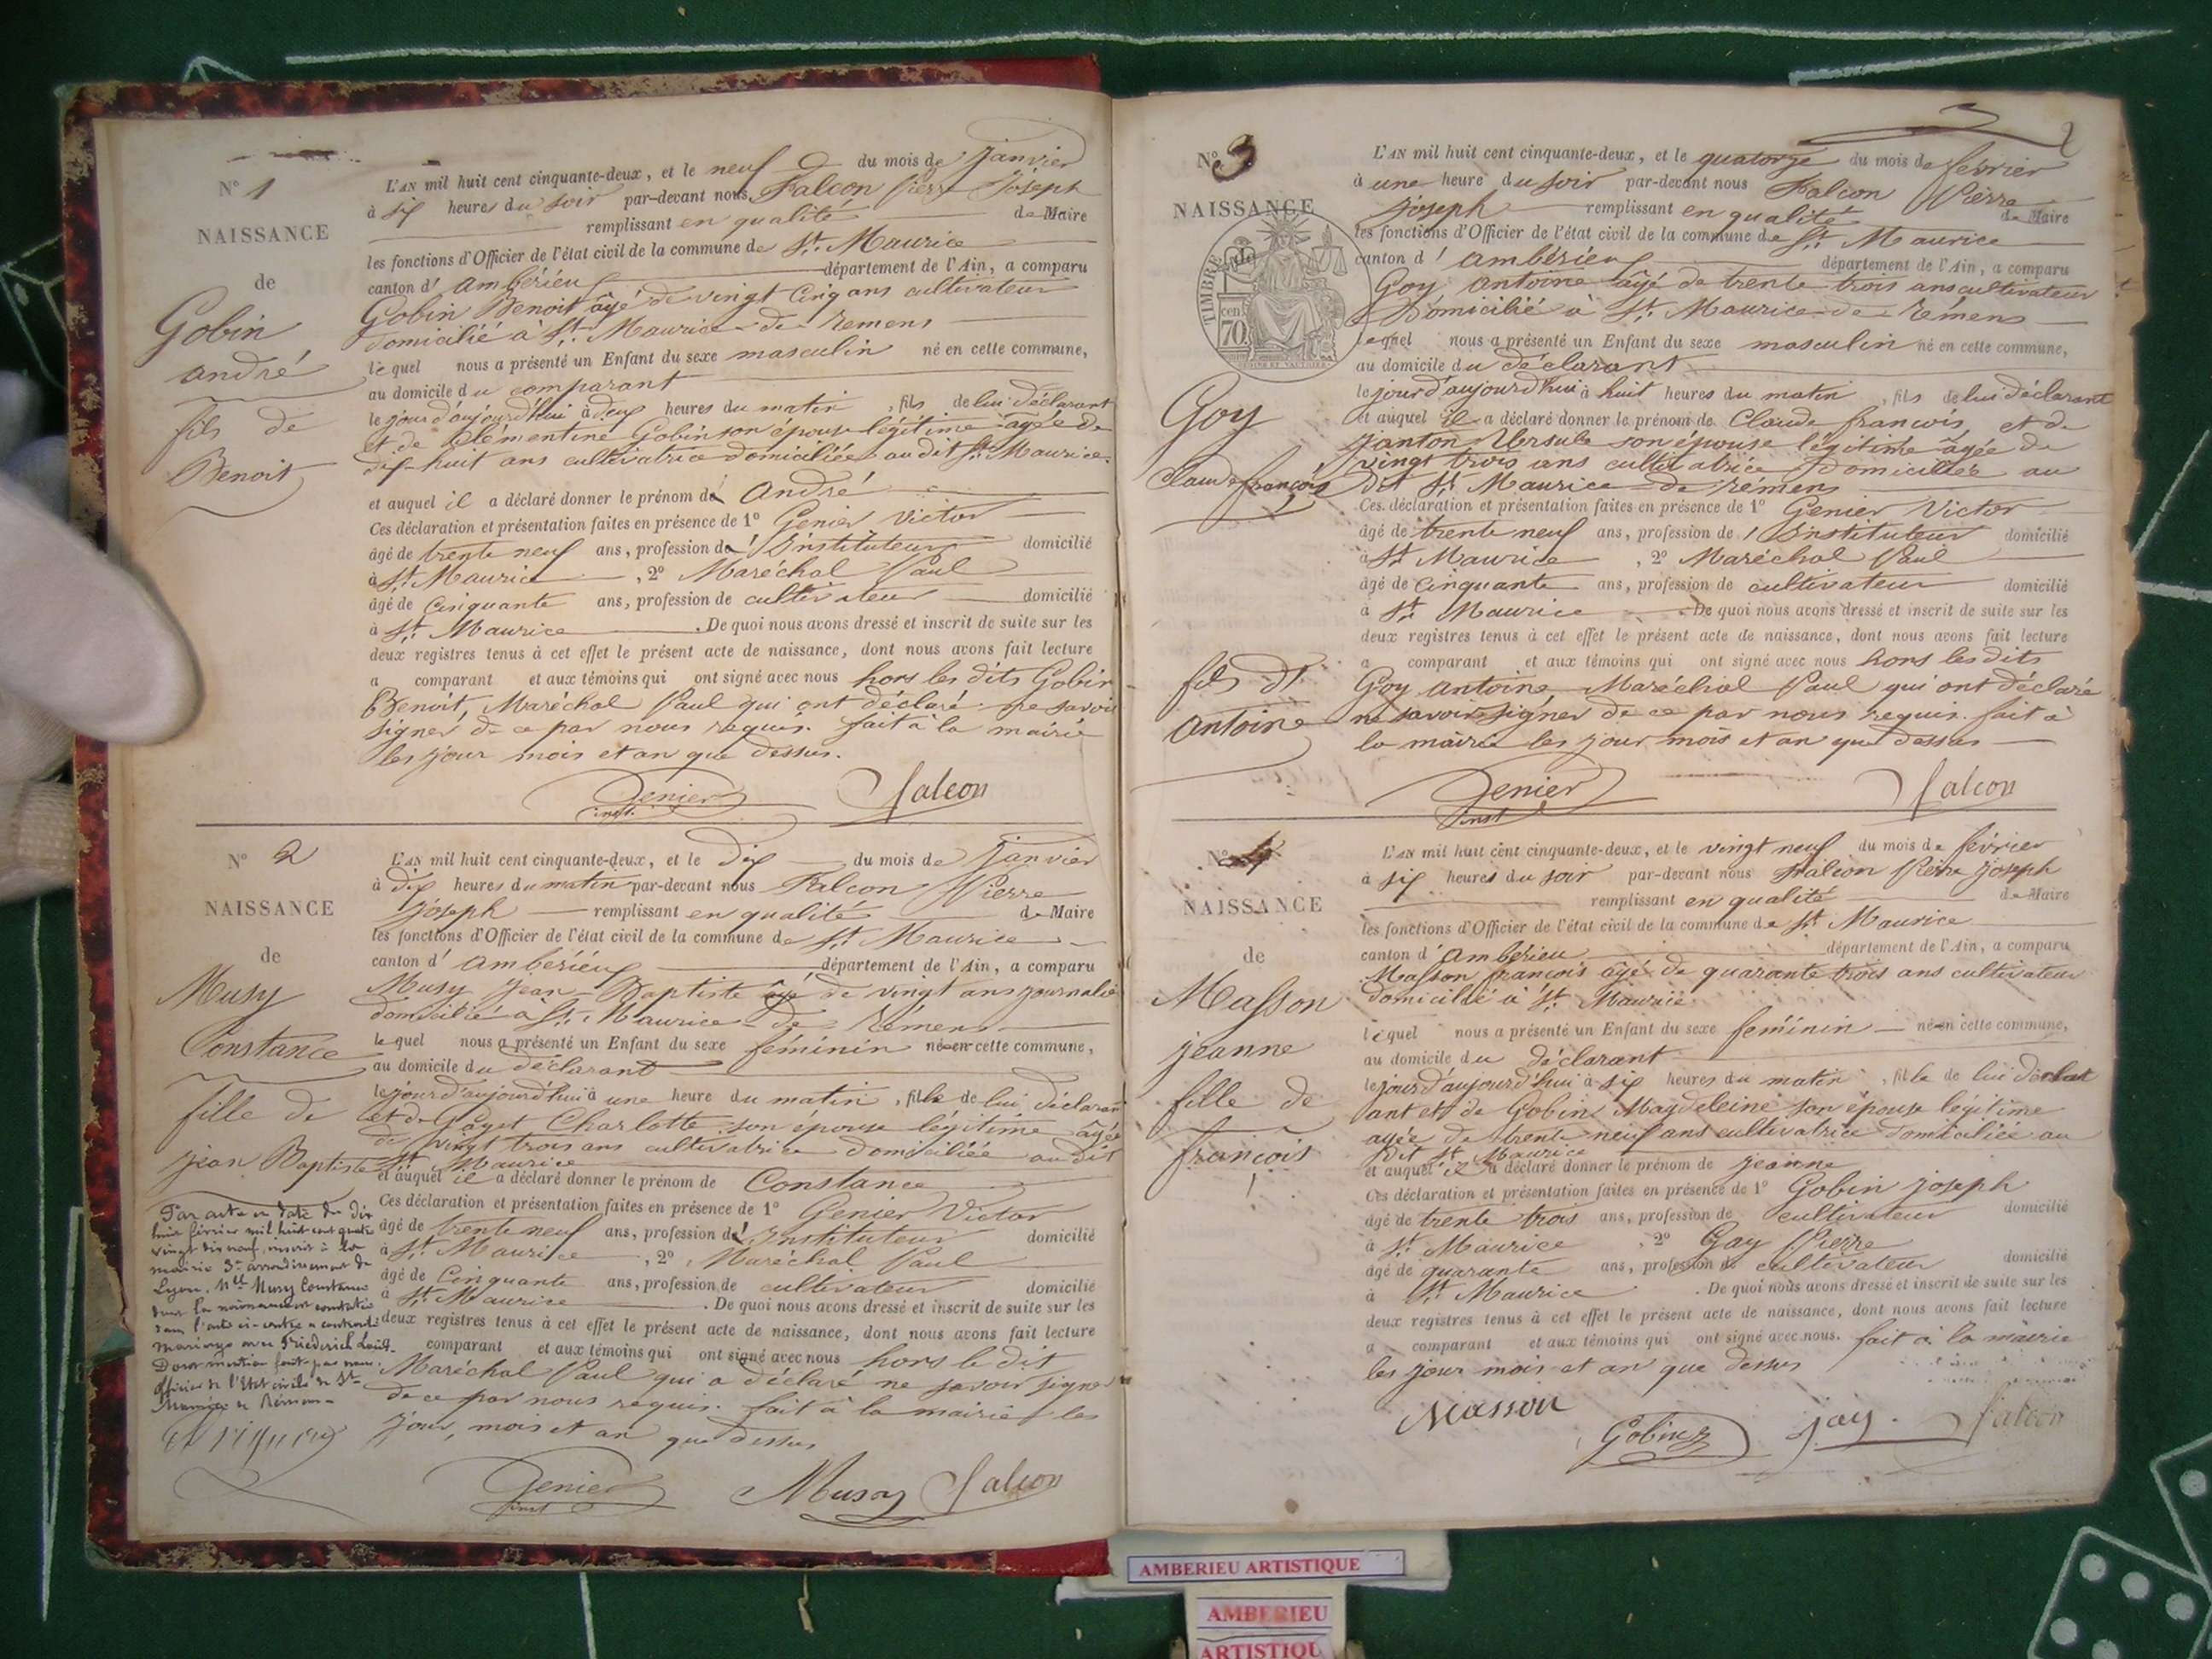 N° 1
NAISSANCE
de
Gobin
André
fils de
Benoit
L'AN mil huit cent cinquante-deux, et le neuf du mois de janvier
à six heures du soir par-devant nous Falcon Pierre Joseph
remplissant en qualité de Maire
les fonctions d'Officier de l'état civil de la commune de St. Maurice
canton d'Ambérieux département de l'Ain, a comparu
Gobin Benoit âgé de vingt cinq ans cultivateur
domicilié à St. Maurice de Remens
lequel nous a présenté un Enfant du sexe masculin né en cette commune,
au domicile du comparant
le jour d'aujourd'hui à deux heures du matin, fils de lui déclarant
et de Clémentine Gobin son épouse légitime âgée de
dix-huit ans cultivatrice domiciliée au dit St. Maurice.
et auquel il a déclaré donner le prénom de André
Ces déclaration et présentation faites en présence de 1° Genier Victor
âgé de trente neuf ans, profession d'Instituteur domicilié
à St. Maurice, 2° Maréchal Paul
âgé de Cinquante ans, profession de cultivateur domicilié
à St. Maurice. De quoi nous avons dressé et inscrit de suite sur les
deux registres tenus à cet effet le présent acte de naissance, dont nous avons fait lecture
a comparant et aux témoins qui ont signé avec nous hors les dits Gobin
Benoit, Maréchal Paul qui ont déclaré ne savoir
signer de ce par nous requis. fait à la mairie
les jour mois et an que dessus.
Genier Falcon
inst.
N° 2
NAISSANCE
de
Musy
Constance
fille de
jean Baptiste
Par acte en date du dix
huit février mil huit cent quatre
vingt dix neuf, inscrit à la
mairie 3e arrondissement de
Lyon, Mlle Musy Constance
dont la naissance est constatée
dans l'acte ci-contre a contracté
mariage avec Friederich Louis
mention faite par nous,
officier de l'Etat civil de St
Maurice de Rémens
L'AN mil huit cent cinquante-deux, et le dix du mois de janvier
à dix heures du matin par-devant nous Falcon Pierre
joseph remplissant en qualité de Maire
les fonctions d'Officier de l'état civil de la commune de St. Maurice
canton d'Ambérieux département de l'Ain, a comparu
Musy Jean-Baptiste âgé de vingt ans journalier
domicilié à St. Maurice de Rémens
lequel nous a présenté un Enfant du sexe féminin né en cette commune,
au domicile du déclarant
le jour d'aujourd'hui à une heure du matin, fille de lui déclarant
et de Gayet Charlotte son épouse légitime âgée
de vingt trois ans cultivatrice domiciliée au dit
St Maurice
et auquel il a déclaré donner le prénom de Constance
Ces déclaration et présentation faites en présence de 1° Genier Victor
âgé de trente neuf ans, profession d'Instituteur domicilié
à St. Maurice, 2° Maréchal Paul
âgé de Cinquante ans, profession de cultivateur domicilié
à St. Maurice. De quoi nous avons dressé et inscrit de suite sur les
deux registres tenus à cet effet le présent acte de naissance, dont nous avons fait lecture
comparant et aux témoins qui ont signé avec nous hors le dit
Maréchal Paul qui a déclaré ne savoir signer
de ce par nous requis. fait à la mairie les
jour, mois et an que dessus
Genier Musy Falcon
inst
2
N° 3
NAISSANCE
TIMBRE
70 cen
Goy
Claude françois
fils d'
Antoine
L'AN mil huit cent cinquante-deux, et le quatorze du mois de février
à une heure du soir par-devant nous Falcon Pierre
joseph remplissant en qualité de Maire
les fonctions d'Officier de l'état civil de la commune de St. Maurice
canton d'Ambérieux département de l'Ain, a comparu
Goy Antoine âgé de trente trois ans cultivateur
Domicilié à St. Maurice de Rémens
lequel nous a présenté un Enfant du sexe masculin né en cette commune,
au domicile du déclarant
le jour d'aujourd'hui à huit heures du matin, fils de lui déclarant
et auquel il a déclaré donner le prénom de Claude françois, et de
Janton Ursule son épouse légitime âgée de
vingt trois ans cultivatrice domiciliée au
dit St Maurice de Rémens
Ces déclaration et présentation faites en présence de 1° Genier Victor
âgé de trente neuf ans, profession d'Instituteur domicilié
à St Maurice, 2° Maréchal Paul
âgé de Cinquante ans, profession de cultivateur domicilié
à St. Maurice. De quoi nous avons dressé et inscrit de suite sur les
deux registres tenus à cet effet le présent acte de naissance, dont nous avons fait lecture
a comparant et aux témoins qui ont signé avec nous hors les dits
Goy Antoine, Maréchal Paul qui ont déclaré
ne savoir signer de ce par nous requis. fait à
la mairie les jour mois et an que dessus
Genier Falcon
inst
N° 4
NAISSANCE
de
Masson
jeanne
fille de
françois
L'AN mil huit cent cinquante-deux, et le vingt neuf du mois de février
à six heures du soir par-devant nous Falcon Pierre joseph
remplissant en qualité de Maire
les fonctions d'Officier de l'état civil de la commune de St Maurice
canton d'Ambérieu département de l'Ain, a comparu
Masson françois âgé de quarante trois ans cultivateur
domicilié à St. Maurice
lequel nous a présenté un Enfant du sexe féminin né en cette commune,
au domicile du déclarant
le jour d'aujourd'hui à six heures du matin, fille de lui déclar
ant et de Gobin Magdeleine son épouse légitime
âgée de trente neuf ans cultivatrice domiciliée au
dit St Maurice
et auquel il a déclaré donner le prénom de jeanne
Ces déclaration et présentation faites en présence de 1° Gobin joseph
âgé de trente trois ans, profession de cultivateur domicilié
à St Maurice, 2° Gay Pierre
âgé de quarante ans, profession de cultivateur domicilié
à St. Maurice. De quoi nous avons dressé et inscrit de suite sur les
deux registres tenus à cet effet le présent acte de naissance, dont nous avons fait lecture
a comparant et aux témoins qui ont signé avec nous. fait à la mairie
les jour mois et an que dessus
Masson Gobin jay Falcon
AMBERIEU ARTISTIQUE
AMBERIEU
ARTISTIQU